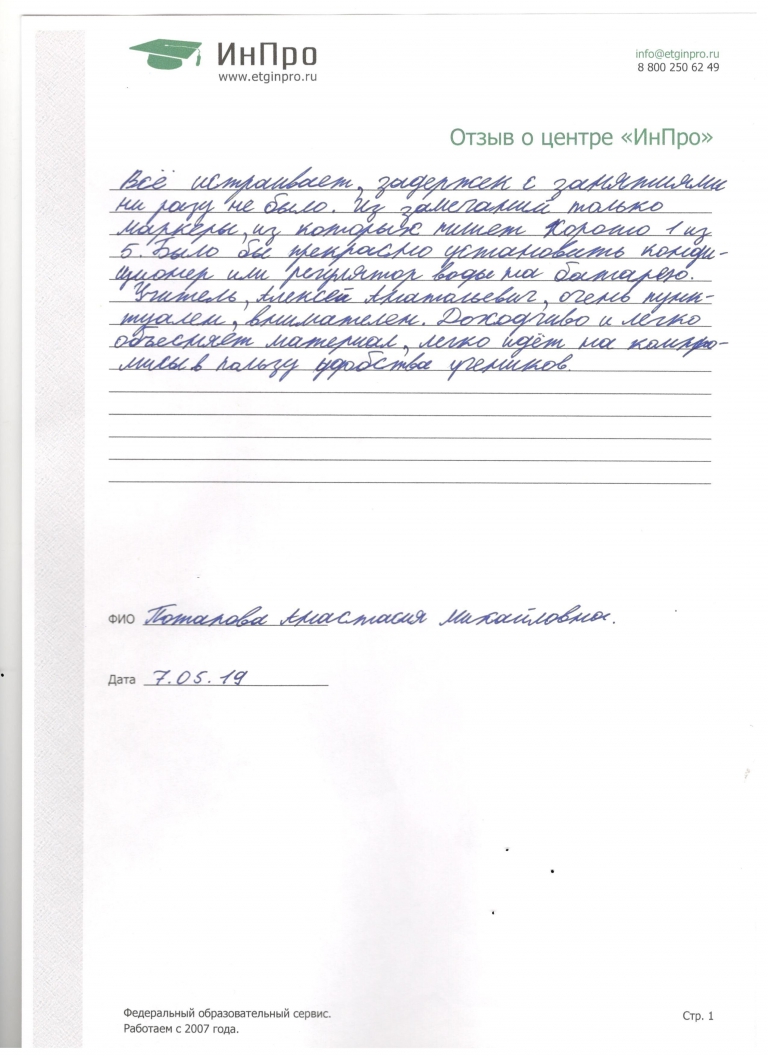 ИнПро
www.etginpro.ru
info@etginpro.ru
8 800 250 62 49
Отзыв о центре «ИнПро»
Всё устраивает, задержек с занятиями
ни разу не было. Из замечаний только
маркеры, из которых пишет хорошо 1 из
5. Было бы прекрасно установить конди-
ционер или регулятор воды на батарею.
Учитель, Алексей Анатольевич, очень пунк-
туален, внимателен. Доходчиво и легко
объесняет материал, легко идёт на компро-
мисы в пользу удобства учеников.
ФИО Потапова Анастасия Михайловна.
Дата 7.05.19
Федеральный образовательный сервис.
Работаем с 2007 года.
Стр. 1